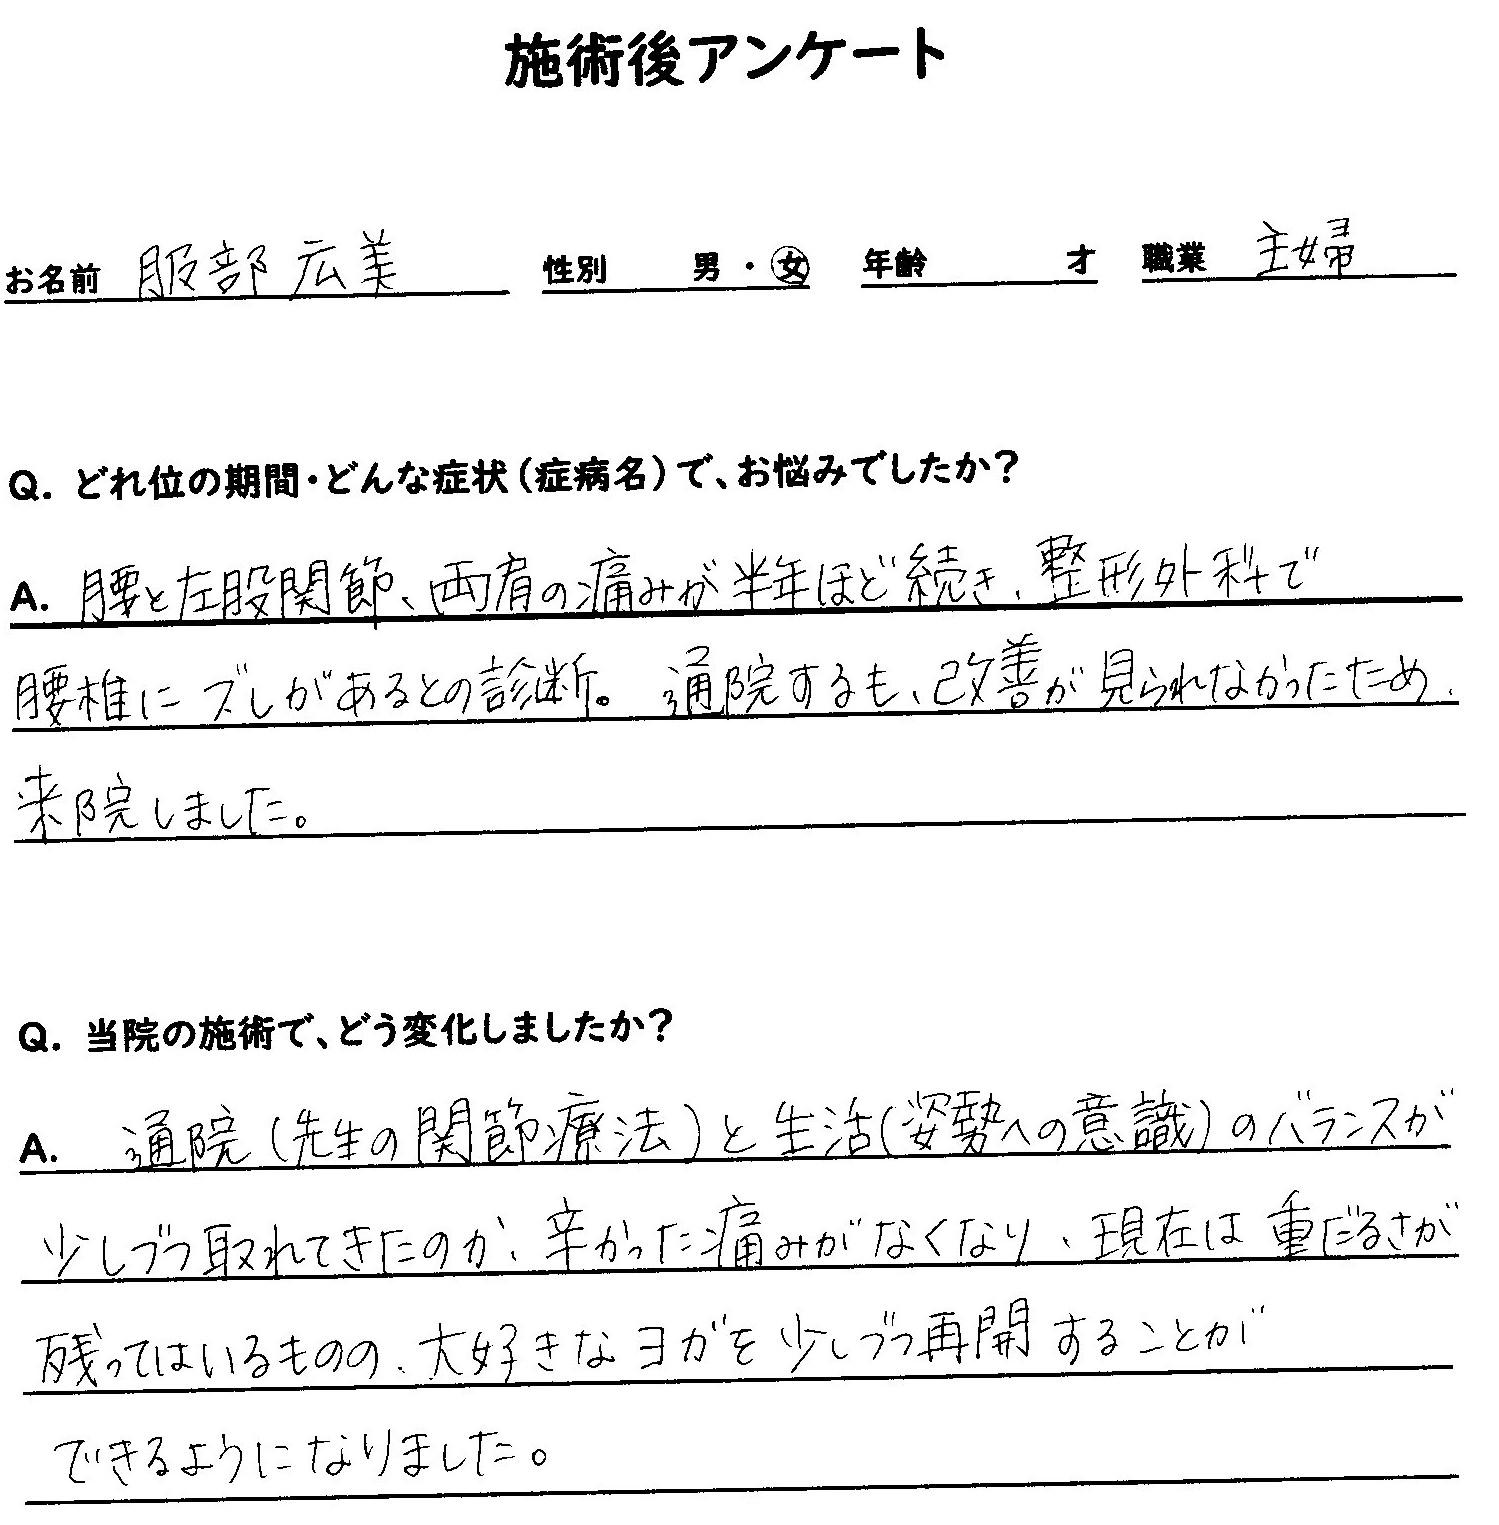 施術後アンケート
お名前 服部 広美 性別 男・女 年齢 才 職業 主婦
Q. どれ位の期間・どんな症状(症病名)で、お悩みでしたか?
A. 腰と左股関節、両肩の痛みが半年ほど続き、整形外科で
腰椎にズレがあるとの診断。通院するも、改善が見られなかったため、
来院しました。
Q. 当院の施術で、どう変化しましたか?
A. 通院(先生の関節療法)と生活(姿勢への意識)のバランスが
少しづつ取れてきたのか、辛かった痛みがなくなり、現在は重だるさが
残ってはいるものの、大好きなヨガを少しづつ再開することが
できるようになりました。